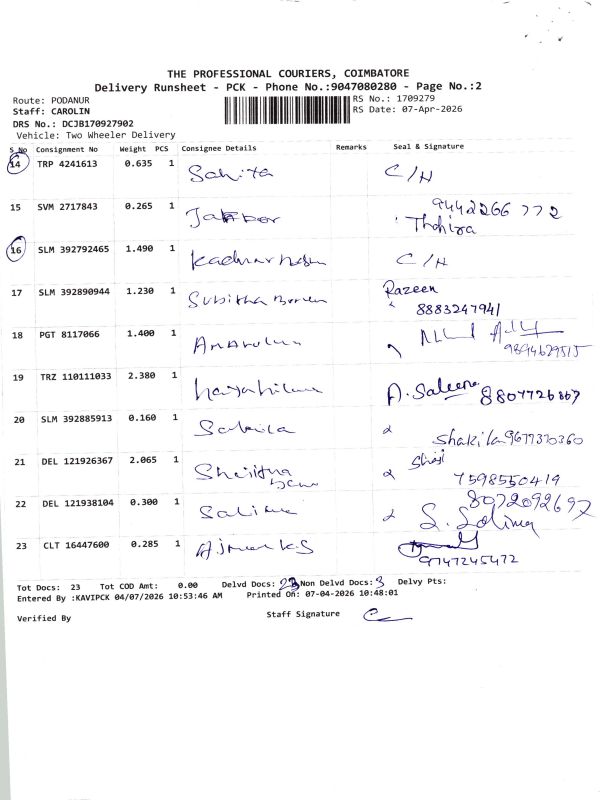 THE PROFESSIONAL COURIERS, COIMBATORE
Delivery Runsheet - PCK - Phone No.:9047080280 - Page No.:2
Route: PODANUR
Staff: CAROLIN
DRS No.: DCJB170927902
Vehicle: Two Wheeler Delivery
RS No.: 1709279
RS Date: 07-Apr-2026
S_No Consignment No Weight PCS Consignee Details Remarks Seal & Signature
14 TRP 4241613 0.635 1 C/H
15 SVM 2717843 0.265 1 9442266 772
Thahira
16 SLM 392792465 1.490 1 C/H
17 SLM 392890944 1.230 1 Razeen
8883247941
18 PGT 8117066 1.400 1
9894629515
19 TRZ 110111033 2.380 1 A. Saleena
20 SLM 392885913 0.160 1 Sakila Shakila 9677370360
21 DEL 121926367 2.065 1
7598550419
22 DEL 121938104 0.300 1 Salima 8072092697
S. Salima
23 CLT 16447600 0.285 1 Ajmal K.S
9747245472
Tot Docs: 23 Tot COD Amt: 0.00 Delvd Docs: Non Delvd Docs: 3 Delvy Pts:
Entered By :KAVIPCK 04/07/2026 10:53:46 AM Printed On: 07-04-2026 10:48:01
Verified By Staff Signature